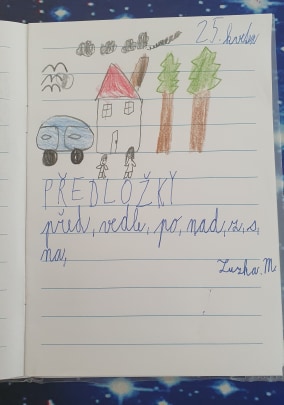 25. květn
PŘEDLOŽKY
před, vedle, po, nad, z, s,
na,
Zuzka M.